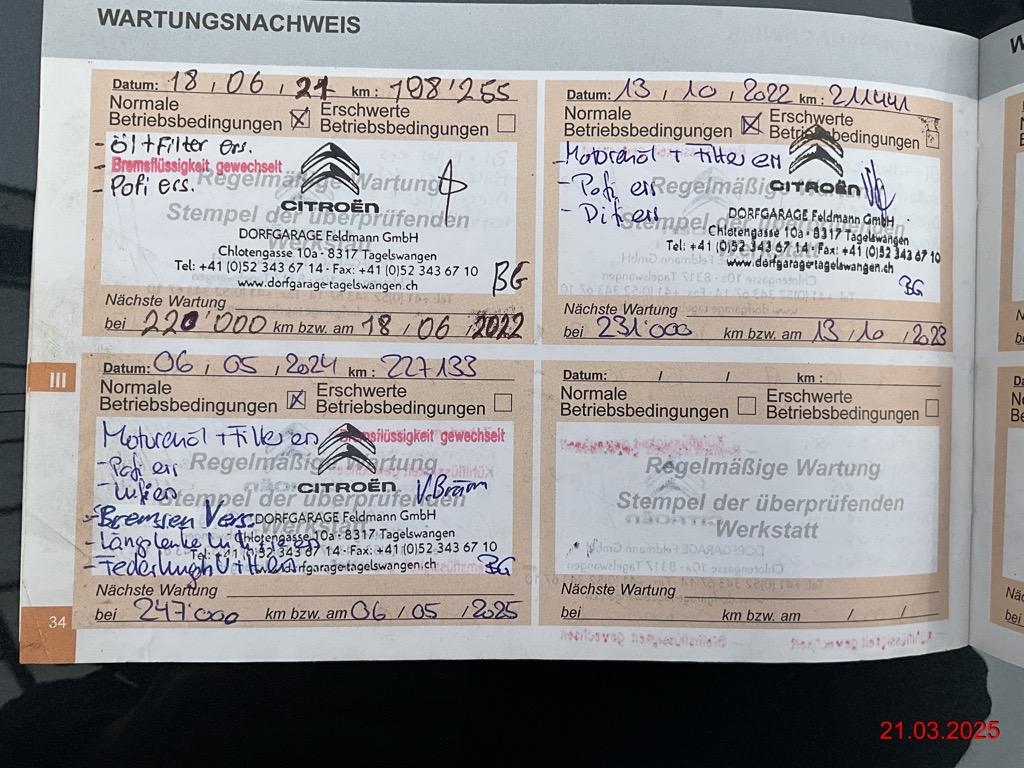 WARTUNGSNACHWEIS
Datum: 18 / 06 / 21 km : 198'255
Normale Betriebsbedingungen ☒ Erschwerte Betriebsbedingungen ☐
- öl + Filter ers.
- Bremsflüssigkeit gewechselt
- Pofi ers.
Regelmäßige Wartung
Stempel der überprüfenden
Werkstatt
CITROËN
DORFGARAGE Feldmann GmbH
Chlotengasse 10a - 8317 Tagelswangen
Tel: +41 (0)52 343 67 14 - Fax: +41 (0)52 343 67 10
www.dorfgarage-tagelswangen.ch
BG
Nächste Wartung
bei 220'000 km bzw. am 18 / 06 / 2022
Datum: 13 / 10 / 2022 km : 211441
Normale Betriebsbedingungen ☒ Erschwerte Betriebsbedingungen ☐
- Motorenöl + Filter ers
- Pofi ers
Regelmäßige Wartung
Stempel der überprüfenden
CITROËN
DORFGARAGE Feldmann GmbH
Chlotengasse 10a - 8317 Tagelswangen
Tel: +41 (0)52 343 67 14 - Fax: +41 (0)52 343 67 10
www.dorfgarage-tagelswangen.ch
BG
Nächste Wartung
bei 231'000 km bzw. am 13 / 10 / 2023
III
Datum: 06 / 05 / 2024 km : 227133
Normale Betriebsbedingungen ☒ Erschwerte Betriebsbedingungen ☐
Motorenöl + Filter ers
Bremsflüssigkeit gewechselt
- Pofi ers
Regelmäßige Wartung
Stempel der überprüfenden
CITROËN
- Bremsen V ers.
DORFGARAGE Feldmann GmbH
Chlotengasse 10a - 8317 Tagelswangen
Tel: +41 (0)52 343 67 14 - Fax: +41 (0)52 343 67 10
www.dorfgarage-tagelswangen.ch
BG
Nächste Wartung
bei 247'000 km bzw. am 06 / 05 / 2025
Datum: / / km :
Normale Betriebsbedingungen ☐ Erschwerte Betriebsbedingungen ☐
Regelmäßige Wartung
Stempel der überprüfenden
Werkstatt
Nächste Wartung
bei km bzw. am / /
34
21.03.2025